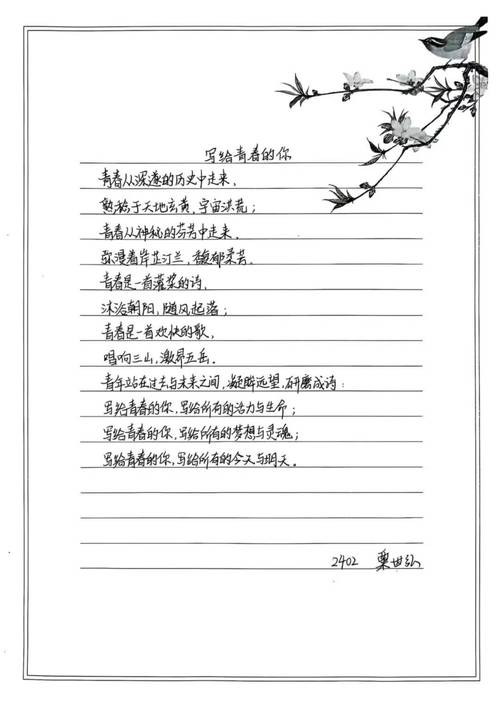 写给青春的你
青春从深邃的历史中走来，
熟稔于天地玄黄，宇宙洪荒；
青春从神秘的芬芳中走来，
弥漫着岸芷汀兰，馥郁柔芳。
青春是一首灌浆的诗，
沐浴朝阳，随风起落；
青春是一首欢快的歌，
唱响三山，激昂五岳。
青年站在过去与未来之间，凝眸远望，研磨成诗：
写给青春的你，写给所有的活力与生命；
写给青春的你，写给所有的梦想与灵魂；
写给青春的你，写给所有的今天与明天。
2402 栗世弘